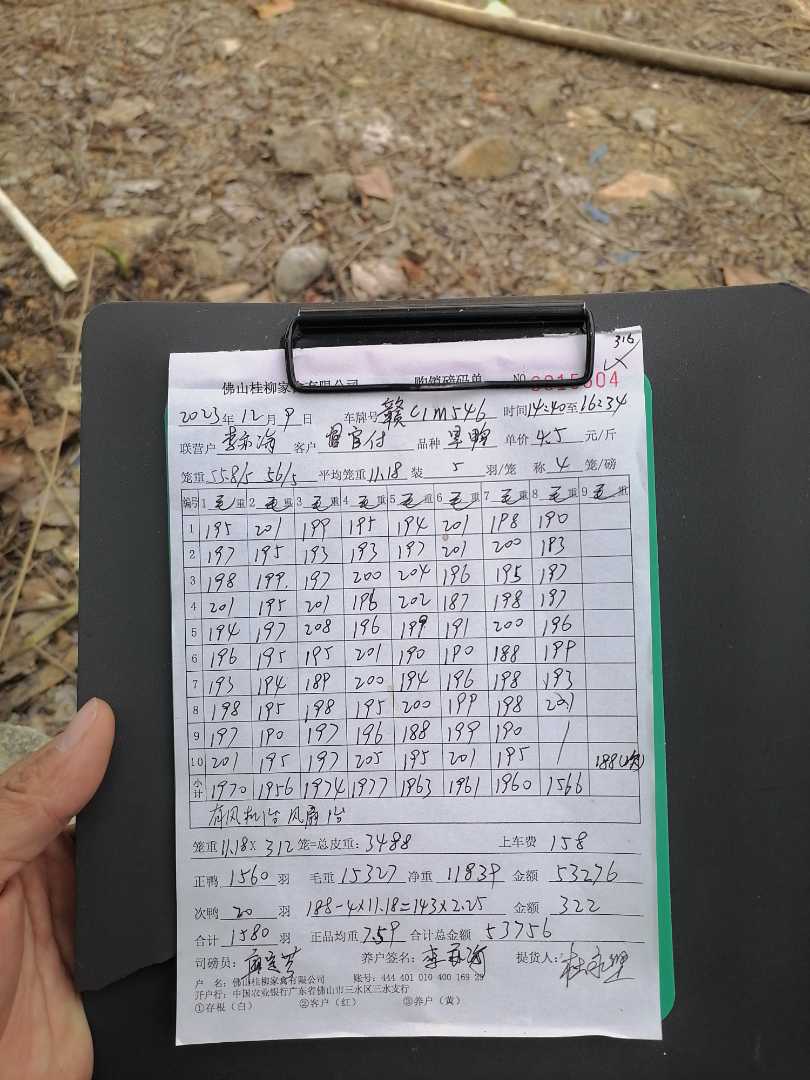 316
佛山桂柳家禽有限公司 购销磅码单 NO
2023年12月9日 车牌号 赣C1M546 时间14:40至16:34
联营户 客户 品种 单价 4.5 元/斤
笼重 55.8/5 56/5 平均笼重 11.18 装 5 羽/笼 称 4 笼/磅
编号 1 毛重 2 毛重 3 毛重 4 毛重 5 毛重 6 毛重 7 毛重 8 毛重 9 毛重
1 195 201 199 195 194 201 198 190
2 197 195 193 193 197 201 200 183
3 198 199. 197 200 204 196 195 197
4 201 195 201 196 202 187 198 197
5 194 197 208 196 199 191 200 196
6 196 195 195 201 190 190 188 199
7 193 194 189 200 194 196 198 193
8 198 195 198 195 200 199 198 201
9 197 190 197 196 188 199 190 /
10 201 195 197 205 195 201 195 / 188(次)
小计 1970 1956 1974 1977 1963 1961 1960 1566
笼重 11.18 × 312 笼=总皮重: 3488 上车费 158
正鸭 1560 羽 毛重 15327 净重 11839 金额 53276
次鸭 20 羽 188-4×11.18=143×2.25 金额 322
合计 1580 羽 正品均重 7.59 合计总金额 53756
司磅员: 养户签名: 提货人:
户 名: 佛山桂柳家禽有限公司 账号: 444 401 010 400 169 29
开户行: 中国农业银行广东省佛山市三水区三水支行
①存根（白） ②客户（红） ③养户（黄）